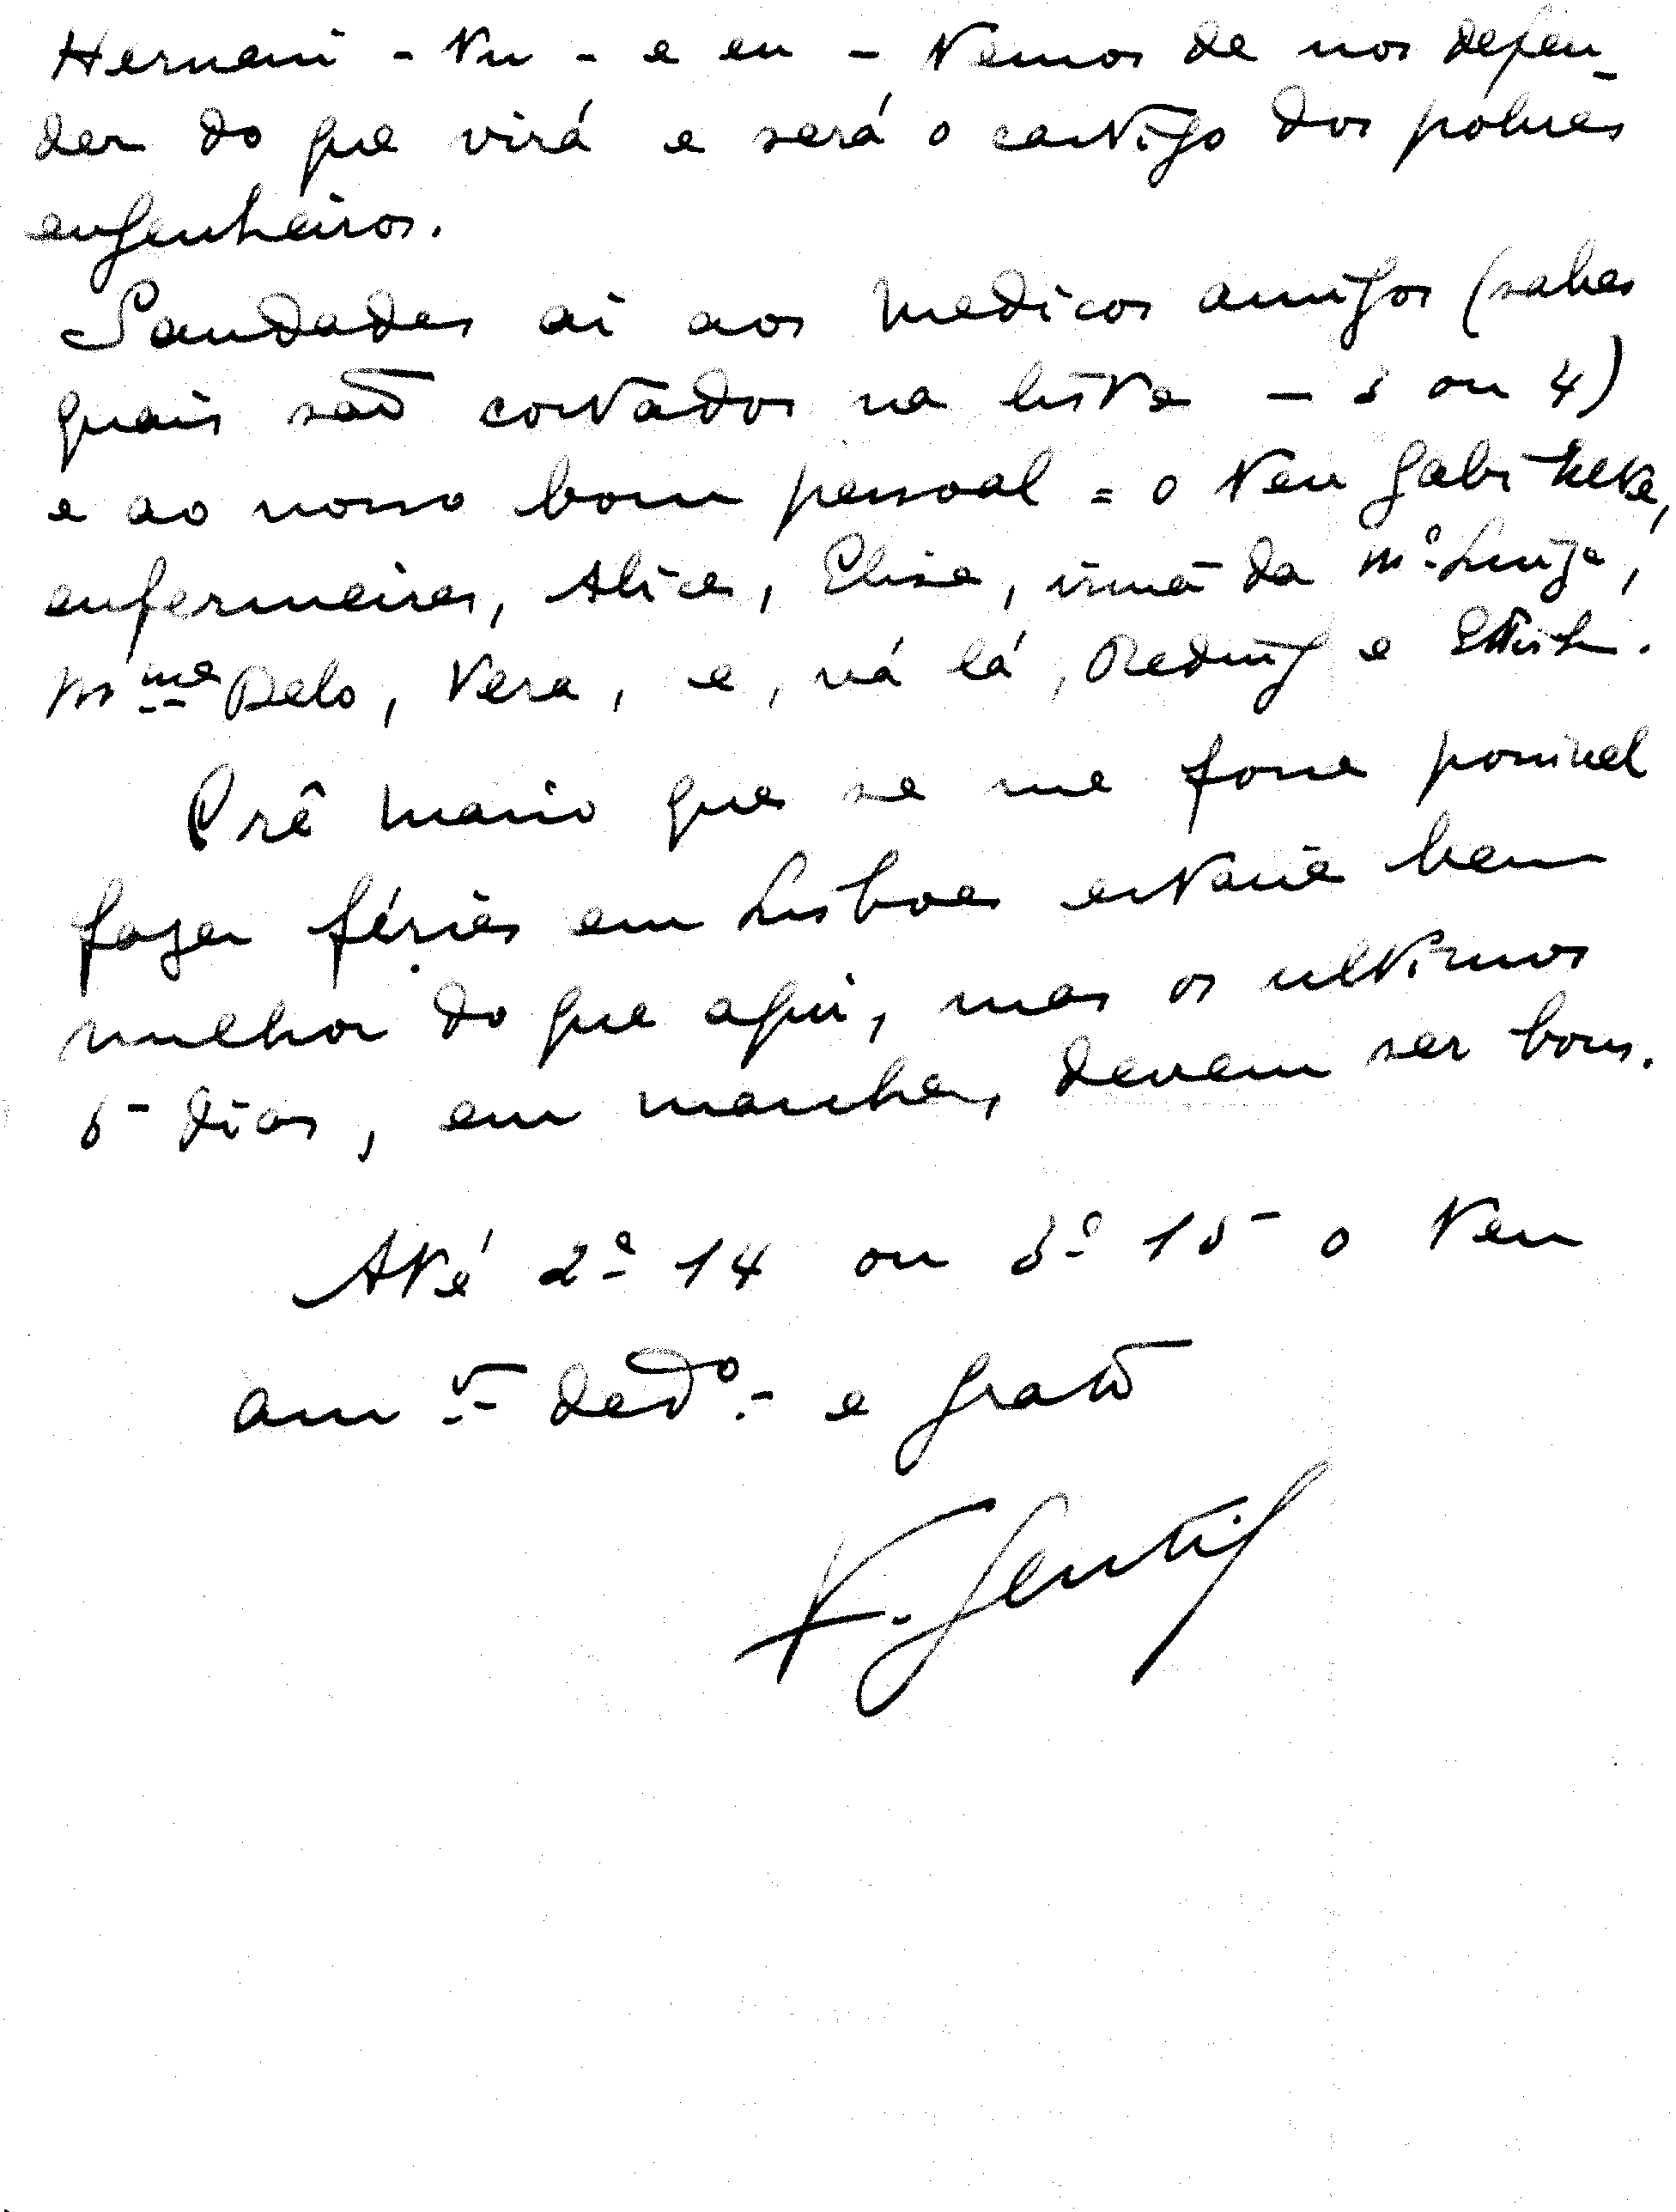 Hernani - tu - e eu - temos de nos defen-
der do que virá e será o castigo dos pobres
engenheiros.
Saudades ai aos medicos amigos (sabes
quais são contados na lista - 3 ou 4)
e ao nosso bom pessoal = o teu gabinete,
enfermeiras, Alice, Elisa, irmã da Mª Luiza,
Mme Belo, Vera, e, vá lá, Reding e
Crê Mario que se me fosse possivel
fazer férias em Lisboa estaria bem
melhor do que aqui, mas os ultimos
5 dias, em marcha, devem ser bons.
Até 2ª 14 ou 3ª 15 o teu
amº dedº e grato
F. Gentil